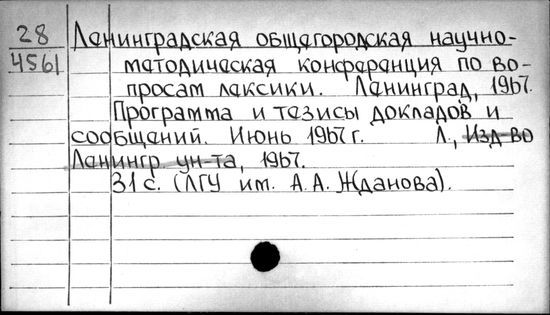 28
4561
Ленинградская общегородская научно-
методическая конференция по во-
просам лексики. Ленинград, 1967.
Программа и тезисы докладов и
сообщений. Июнь 1967 г. Л., Изд-во
Ленингр. ун-та, 1967.
31 с. (ЛГУ им. А. А. Жданова).